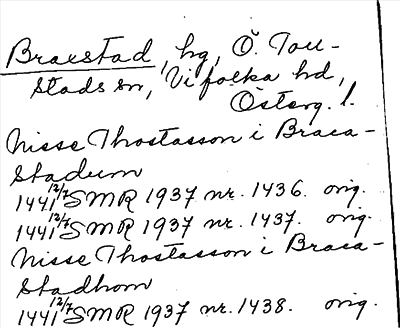 Braxstad, hg, Ö. Tol-
stads sn, Vifolka hd,
Österg. l.
Nisse Thostasson i Braca-
stadum
1441 12/7 SMR 1937 nr. 1436. orig.
1441 12/7 SMR 1937 nr. 1437. orig.
Nisse Thostasson i Braca-
stadhom
1441 12/7 SMR 1937 nr. 1438. orig.